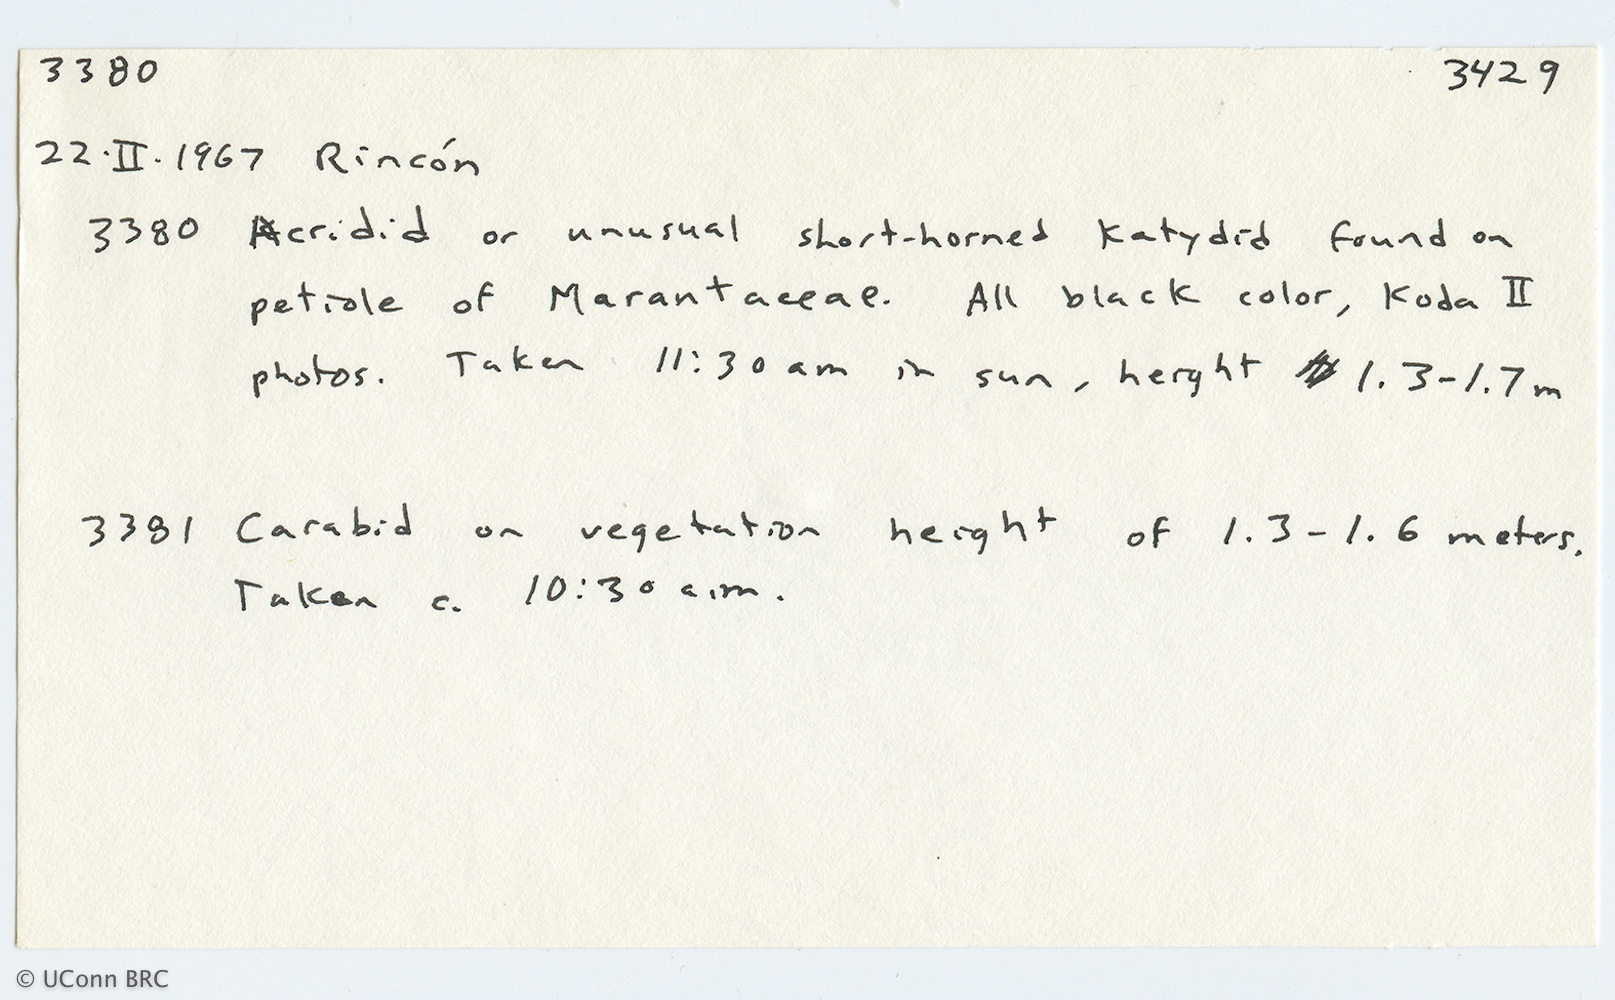 3380 3429
22·II·1967 Rincón
3380 Acridid or unusual short-horned Katydid found on
petiole of Marantaceae. All black color, Koda II
photos. Taken 11:30 am in sun, height 1.3-1.7m
3381 Carabid on vegetation height of 1.3-1.6 meters.
Taken c. 10:30 a.m.
© UConn BRC